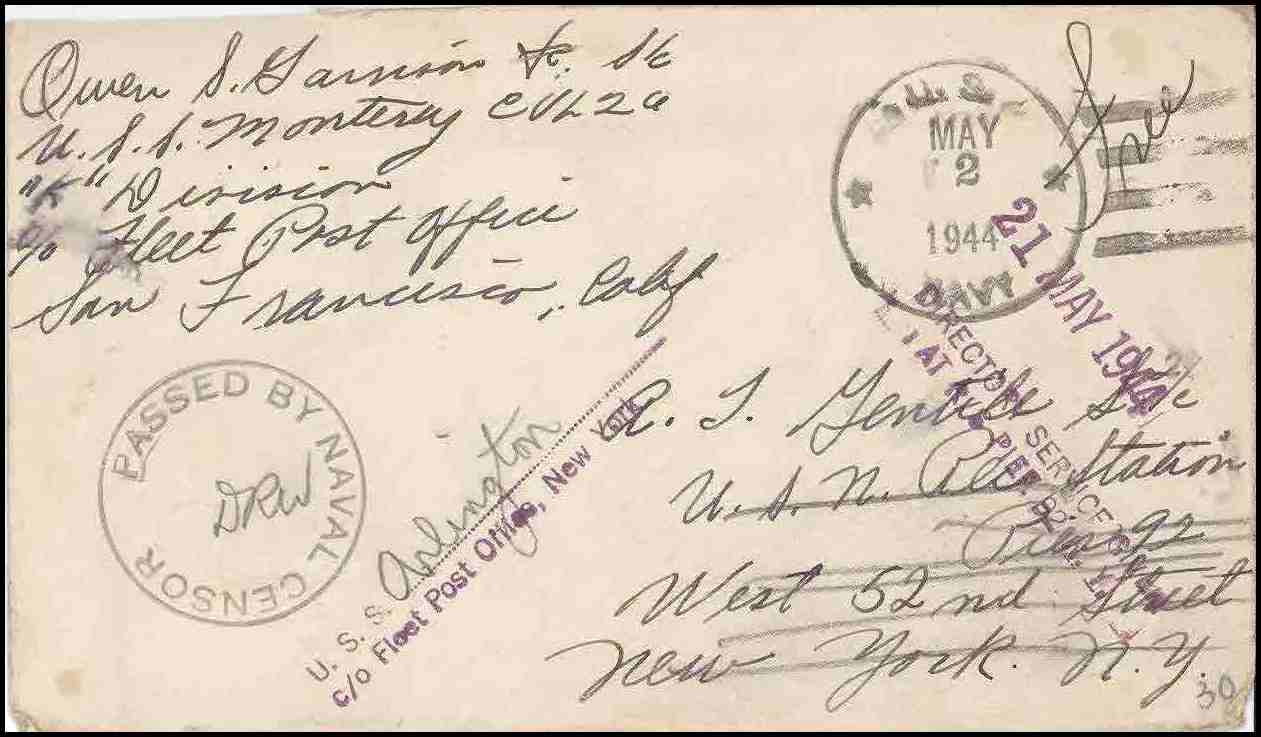 Owen S. Garrison Jr. S1c
U.S.S. Monterey CVL 26
"K" Division
c/o Fleet Post Office
San Francisco, Calif
Free
U.S.
MAY
2
1944
NAVY
21 MAY 1944
DIRECTORY SERVICE
AT PIER 92
PASSED BY NAVAL CENSOR
DRW
U. S. S. Arlington
c/o Fleet Post Office, New York
R. J. Gentile S1c
U.S.N. Rec Station
Pier 92
West 52nd Street
New York. N.Y.
30